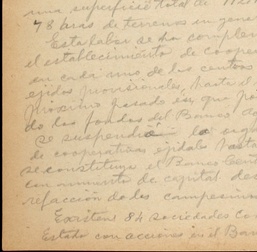 una superficie total de
78 áras de terrenos en gene
Esta labor se ha complem
el establecimiento de cooper
en cada uno de los centros
ejidos provisionales, hasta el
próximo pasado en que po
do los fondos del Banco Ag
se suspendió la orga
de cooperativas ejidales hasta
se constituya el Banco Cent
con aumento de capital des
refacción de los campesinos
Existen 84 sociedades Co
Estado con acciones en el Ban